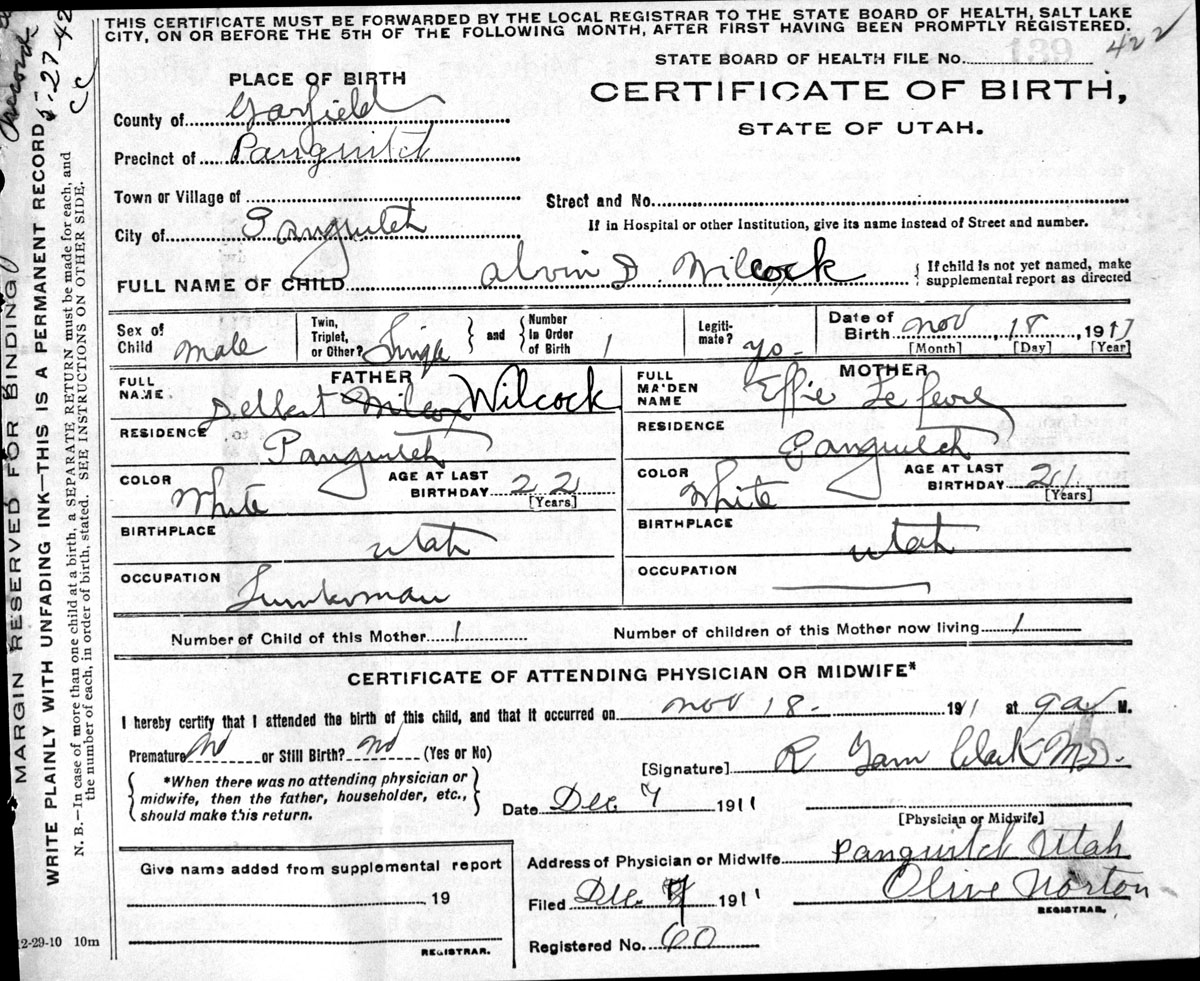 THIS CERTIFICATE MUST BE FORWARDED BY THE LOCAL REGISTRAR TO THE STATE BOARD OF HEALTH, SALT LAKE
CITY, ON OR BEFORE THE 5TH OF THE FOLLOWING MONTH, AFTER FIRST HAVING BEEN PROMPTLY REGISTERED.
139
422
STATE BOARD OF HEALTH FILE No.
CERTIFICATE OF BIRTH,
STATE OF UTAH.
PLACE OF BIRTH
County of Garfield
Precinct of Panguitch
Town or Village of
Street and No.
City of Panguitch
If in Hospital or other Institution, give its name instead of Street and number.
FULL NAME OF CHILD Alvin D. Wilcock
{ If child is not yet named, make
supplemental report as directed
Sex of Child Male
Twin, Triplet, or Other? Single } and { Number In Order of Birth 1
Legiti-mate? yes
Date of Birth Nov 18, 1911
[Month] [Day] [Year]
FATHER
FULL NAME Delbert Wilcox Wilcock
MOTHER
FULL MAIDEN NAME Effie Le Fevre
RESIDENCE Panguitch
RESIDENCE Panguitch
COLOR White AGE AT LAST BIRTHDAY 22 [Years]
COLOR White AGE AT LAST BIRTHDAY 21 [Years]
BIRTHPLACE Utah
BIRTHPLACE Utah
OCCUPATION
OCCUPATION
Number of Child of this Mother 1
Number of children of this Mother now living 1
CERTIFICATE OF ATTENDING PHYSICIAN OR MIDWIFE*
I hereby certify that I attended the birth of this child, and that it occurred on Nov 18. 1911 at 9 a M.
Premature No or Still Birth? No (Yes or No)
[Signature] R Garn Clark M.D.
{ *When there was no attending physician or
midwife, then the father, householder, etc.,
should make this return. }
Date Dec 7 1911
[Physician or Midwife]
Give name added from supplemental report
19
REGISTRAR.
Address of Physician or Midwife Panguitch Utah
Filed Dec. 7 1911 Olive Norton
REGISTRAR.
Registered No. 60
12-29-10 10m
MARGIN RESERVED FOR BINDING
WRITE PLAINLY WITH UNFADING INK—THIS IS A PERMANENT RECORD
N. B.—In case of more than one child at a birth, a SEPARATE RETURN must be made for each, and
the number of each, in order of birth, stated. SEE INSTRUCTIONS ON OTHER SIDE.
record
5-27-42
CC